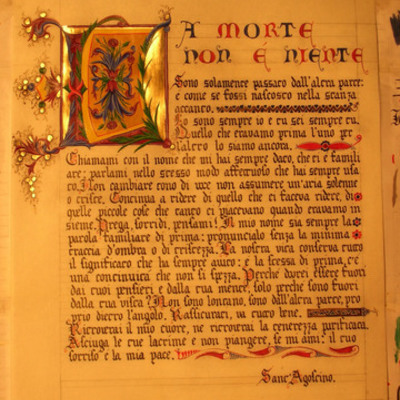 LA MORTE
NON É NIENTE
Sono solamente passato dall'altra parte:
è come se fossi nascosto nella stanza
accanto.
Io sono sempre io e tu sei sempre tu.
Quello che eravamo prima l'uno per
l'altro lo siamo ancora.
Chiamami con il nome che mi hai sempre dato, che ti è famili
are; parlami nello stesso modo affettuoso che hai sempre usa
to. Non cambiare tono di voce non assumere un'aria solenne
o triste. Continua a ridere di quello che ci faceva ridere, di
quelle piccole cose che tanto ci piacevano quando eravamo in
sieme. Prega, sorridi, pensami! Il mio nome sia sempre la
parola familiare di prima: pronuncialo senza la minima
traccia d'ombra o di tristezza. La nostra vita conserva tutto
il significato che ha sempre avuto: è la stessa di prima, c'è
una continuità che non si spezza. Perché dovrei essere fuori
dai tuoi pensieri e dalla tua mente, solo perché sono fuori
dalla tua vista? Non sono lontano, sono dall'altra parte, pro
prio dietro l'angolo. Rassicurati, va tutto bene.
Ritroverai il mio cuore, ne ritroverai la tenerezza purificata.
Asciuga le tue lacrime e non piangere, se mi ami: il tuo
sorriso è la mia pace.
Sant'Agostino.